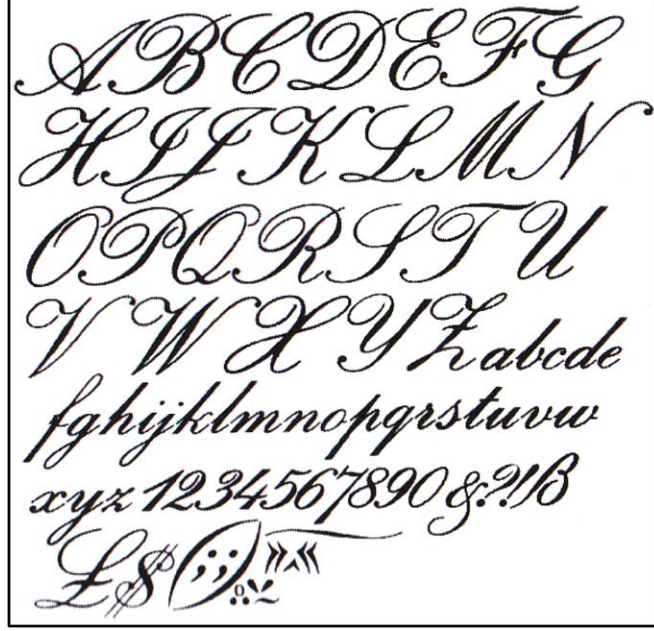 ABCDEFG
HIJKLMN
OPQRSTU
VWXYZabcde
fghijklmnopqrstuvw
xyz1234567890&?!ß
£$(:;)»«